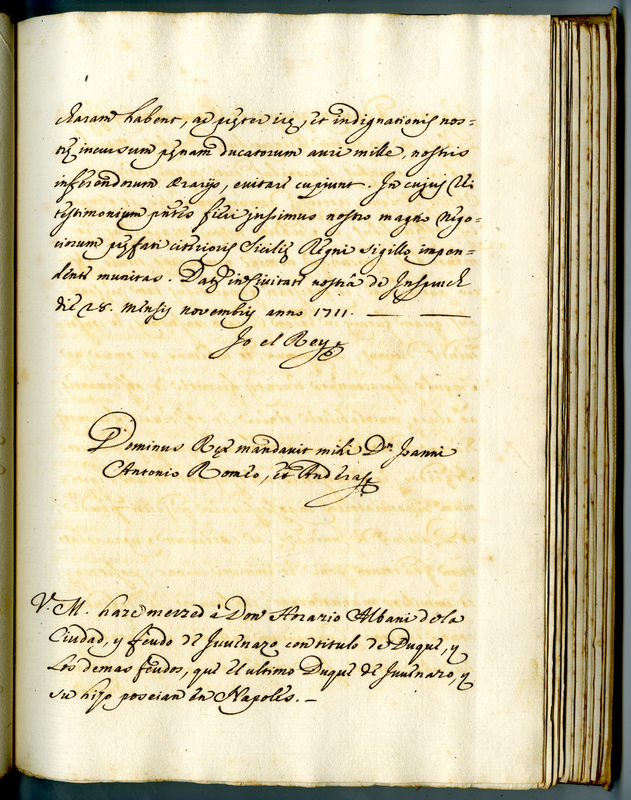 charam habent, ac pręter irę, et indignationis nos=
trę incursum pęnam ducatorum auri mille, nostris
inferendorum ærarijs, evitare cupiunt. In cujus rei
testimonium pntes fieri jussimus nostro magno nego=
tiorum pręfati citerioris Sicilię Regni sigillo impen=
denti munitas. Dat. in Civitate nostra de Inspruck
die 28. mensis novembris anno 1711. —— ——
Jo el Rey
Dominus Rex mandavit mihi Dn Joanni
Antonio Romeo, et Anderas
V. M. haze merzed à Don Horario Albani de la
Ciudad, y feudo de Juvenazo con titulo de Duque, y
los demas feudos, que el ultimo Duque de Juvenazo, y
su hijo poseian en Napoles. —